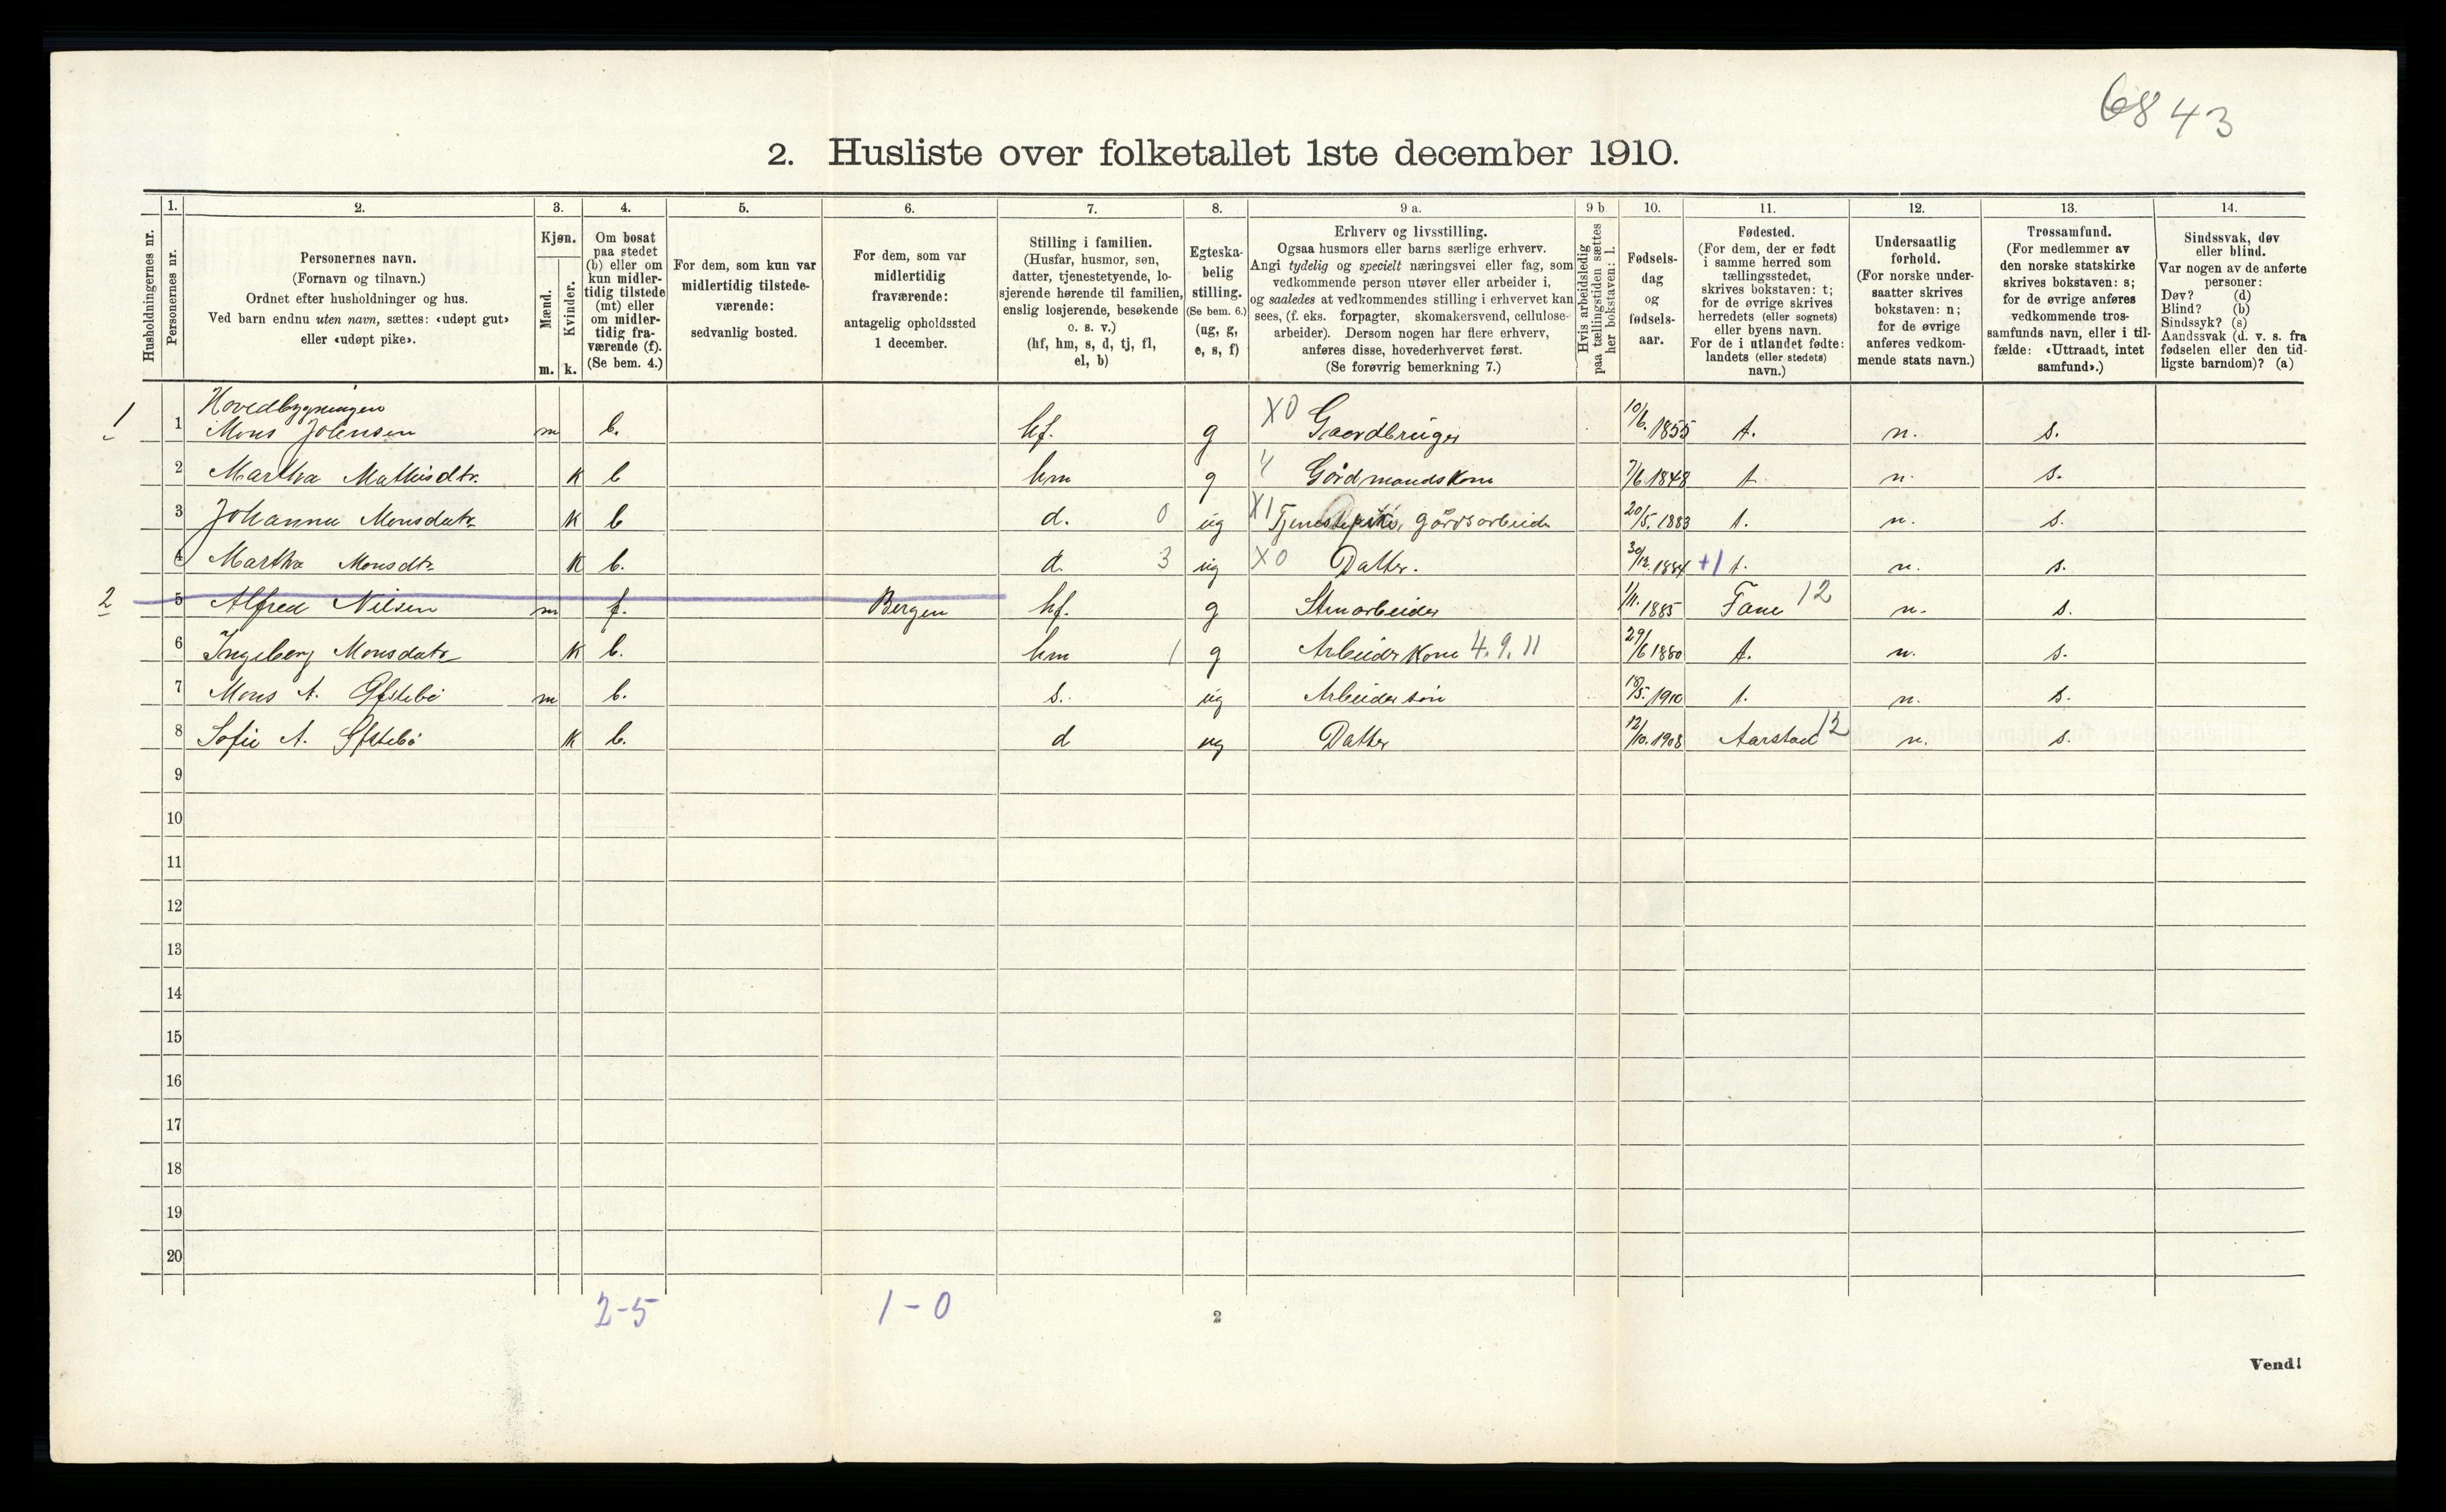 6843
2. Husliste over folketallet 1ste december 1910.
Husholdningernes nr.
1. Personernes nr.
2. Personernes navn.
(Fornavn og tilnavn.)
Ordnet efter husholdninger og hus.
Ved barn endnu uten navn, sættes: «udøpt gut»
eller «udøpt pike».
3. Kjøn.
Mænd. Kvinder.
m. k.
4. Om bosat
paa stedet
(b) eller om
kun midler-
tidig tilstede
(mt) eller
om midler-
tidig fra-
værende (f).
(Se bem. 4.)
5. For dem, som kun var
midlertidig tilstede-
værende:
sedvanlig bosted.
6. For dem, som var
midlertidig
fraværende:
antagelig opholdssted
1 december.
7. Stilling i familien.
(Husfar, husmor, søn,
datter, tjenestetyende, lo-
sjerende hørende til familien,
enslig losjerende, besøkende
o. s. v.)
(hf, hm, s, d, tj, fl,
el, b)
8. Egteska-
belig
stilling.
(Se bem. 6.)
(ug, g,
e, s, f)
9 a. Erhverv og livsstilling.
Ogsaa husmors eller barns særlige erhverv.
Angi tydelig og specielt næringsvei eller fag, som
vedkommende person utøver eller arbeider i,
og saaledes at vedkommendes stilling i erhvervet kan
sees, (f. eks. forpagter, skomakersvend, cellulose-
arbeider). Dersom nogen har flere erhverv,
anføres disse, hovederhvervet først.
(Se forøvrig bemerkning 7.)
9 b Hvis arbeidsledig
paa tællingstiden sættes
her bokstaven: l.
10. Fødsels-
dag
og
fødsels-
aar.
11. Fødested.
(For dem, der er født
i samme herred som
tællingsstedet,
skrives bokstaven: t;
for de øvrige skrives
herredets (eller sognets)
eller byens navn.
For de i utlandet fødte:
landets (eller stedets)
navn.)
12. Undersaatlig
forhold.
(For norske under-
saatter skrives
bokstaven: n;
for de øvrige
anføres vedkom-
mende stats navn.)
13. Trossamfund.
(For medlemmer av
den norske statskirke
skrives bokstaven: s;
for de øvrige anføres
vedkommende tros-
samfunds navn, eller i til-
fælde: «Uttraadt, intet
samfund».)
14. Sindssvak, døv
eller blind.
Var nogen av de anførte
personer:
Døv? (d)
Blind? (b)
Sindssyk? (s)
Aandssvak (d. v. s. fra
fødselen eller den tid-
ligste barndom)? (a)
Hovedbygningen
1 1 Mons Johnsen m b. hf. g X0 Gaardbruger 10/6. 1855 t. n. s.
2 Martha Mathisdtr. k b hm g 4 Gårdmandskone 7/6 1848 t n. s.
3 Johanna Monsdatr k b d. 0 ug X1 Tjenestepike, gårdsarbeide 20/5. 1883 t. n. s.
4 Martha Monsdtr k b. d. 3 ug X0 Datter. 30/12. 1884 +1 t. n. s.
2 5 Alfred Nilsen m f. Bergen hf. g Stenarbeider 1/11. 1885 Fane 12 n. s.
6 Ingeborg Monsdatr k b. hm 1 g Arbeiderkone 4.9.11 29/6 1880 t. n. s.
7 Mons A. Øfstebö m b. s. ug Arbeidersön 18/5. 1910 t. n. s.
8 Sofie A. Øfstebö k b. d ug Datter 12/10. 1908 Aarstad 12 n. s.
9
10
11
12
13
14
15
16
17
18
19
20
2-5 1-0
2
Vend!